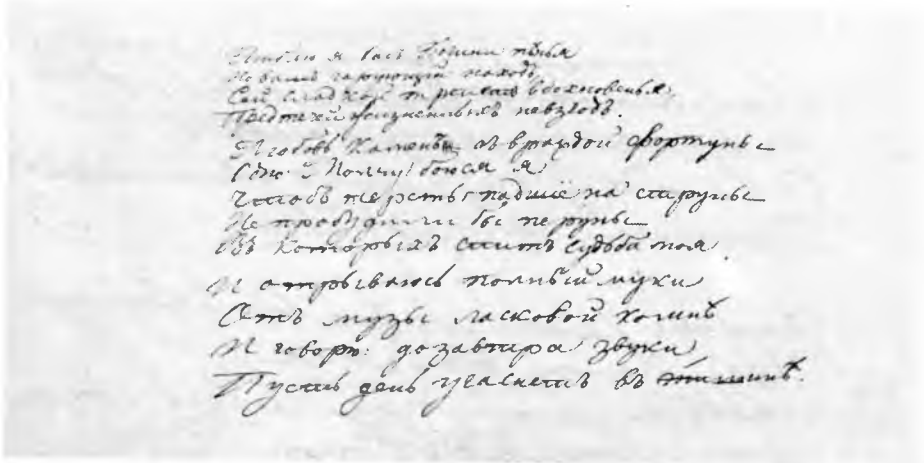 Люблю я васъ Богини пѣнья
Но вашъ чарующій находъ,
Сей сладкой трепетъ вдохновенья,
Предтечей жизненныхъ невзгодъ.
Любовь Каменъ съ враждой фортуны
Одно! Молчу! боюся я
Чтобъ персты падшіе на струны
Не пробудили бы перуны
Въ которыхъ спитъ судьба моя.
И отрываюсь полный муки
Отъ музы ласковой комнѣ
И говорю: до завтра звуки
Пусть день угаснетъ въ тишинѣ.